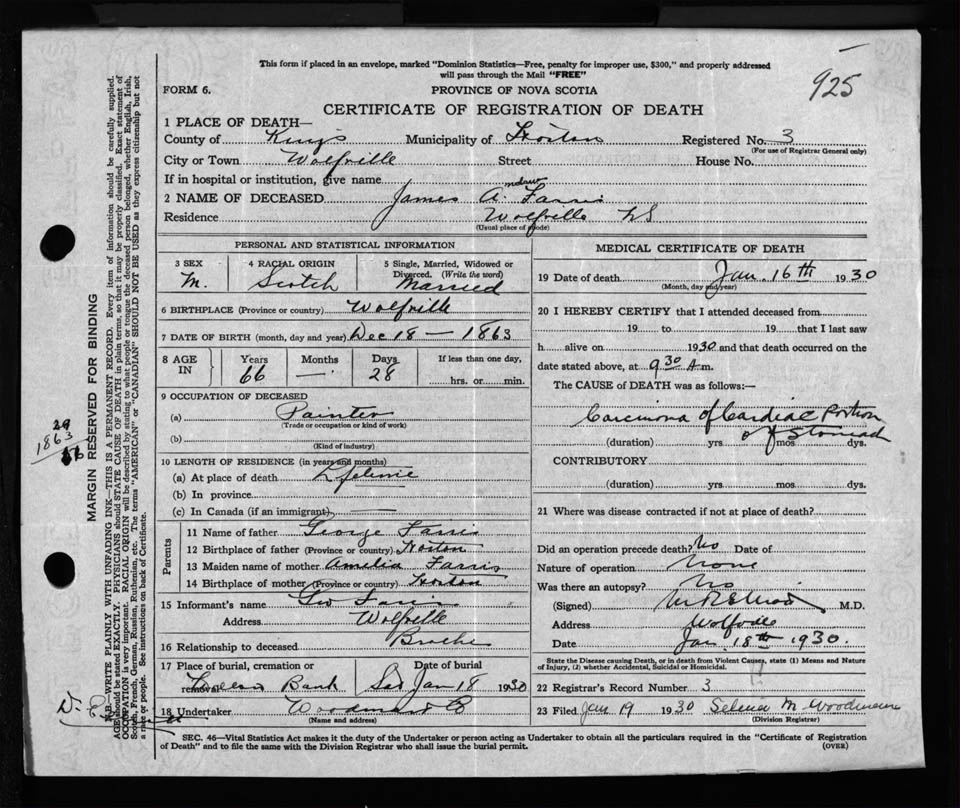 This form if placed in an envelope, marked "Dominion Statistics—Free, penalty for improper use, $300," and properly addressed
will pass through the Mail "FREE"
925
FORM 6. PROVINCE OF NOVA SCOTIA
CERTIFICATE OF REGISTRATION OF DEATH
1 PLACE OF DEATH—
County of Kings Municipality of Horton Registered No. 3
(For use of Registrar General only)
City or Town Wolfville Street House No.
If in hospital or institution, give name
2 NAME OF DECEASED James A. Farris
Residence Wolfville NS
(Usual place of abode)
PERSONAL AND STATISTICAL INFORMATION
3 SEX 4 RACIAL ORIGIN 5 Single, Married, Widowed or Divorced. (Write the word)
M. Scotch Married
6 BIRTHPLACE (Province or country) Wolfville
7 DATE OF BIRTH (month, day and year) Dec 18 — 1863
8 AGE IN Years Months Days If less than one day,
66 — 28 hrs. or min.
9 OCCUPATION OF DECEASED
(a) Painter
(Trade or occupation or kind of work)
(b)
(Kind of industry)
10 LENGTH OF RESIDENCE (in years and months)
(a) At place of death Lifetime
(b) In province
(c) In Canada (if an immigrant) —
Parents
11 Name of father George Farris
12 Birthplace of father (Province or country) Horton
13 Maiden name of mother Amelia Farris
14 Birthplace of mother (Province or country) Horton
15 Informant's name Geo Farris
Address Wolfville
16 Relationship to deceased
17 Place of burial, cremation or removal Date of burial
Jan 18 1930
18 Undertaker
(Name and address)
MEDICAL CERTIFICATE OF DEATH
19 Date of death Jan. 16th 1930
(Month, day and year)
20 I HEREBY CERTIFY that I attended deceased from
19 to 19 that I last saw
h alive on 1930 and that death occurred on the
date stated above, at 9 30 A m.
The CAUSE of DEATH was as follows:—
Carcinoma of Cardiac Portion
of Stomach
(duration) yrs. mos. dys.
CONTRIBUTORY
(duration) yrs. mos. dys.
21 Where was disease contracted if not at place of death?
Did an operation precede death? No Date of
Nature of operation None
Was there an autopsy? No
(Signed) M.D.
Address Wolfville
Date Jan 18th 1930.
State the Disease causing Death, or in death from Violent Causes, state (1) Means and Nature
of Injury, (2) whether Accidental, Suicidal or Homicidal.
22 Registrar's Record Number 3
23 Filed Jan 19 1930
(Division Registrar)
SEC. 46—Vital Statistics Act makes it the duty of the Undertaker or person acting as Undertaker to obtain all the particulars required in the "Certificate of Registration
of Death" and to file the same with the Division Registrar who shall issue the burial permit. (OVER)
MARGIN RESERVED FOR BINDING
N.B.—WRITE PLAINLY WITH UNFADING INK—THIS IS A PERMANENT RECORD. Every item of information should be carefully supplied.
AGE should be stated EXACTLY. PHYSICIANS should STATE CAUSE OF DEATH in plain terms, so that it may be properly classified. Exact statement of
OCCUPATION is very important. RACIAL ORIGIN will be described by stating to what people or tongue the deceased person belonged, whether English, Irish,
Scotch, French, German, Russian, Ruthenian, etc. The terms "AMERICAN" or "CANADIAN" SHOULD NOT BE USED as they express citizenship but not
a race or people. See instructions on back of Certificate.
29
1863
66